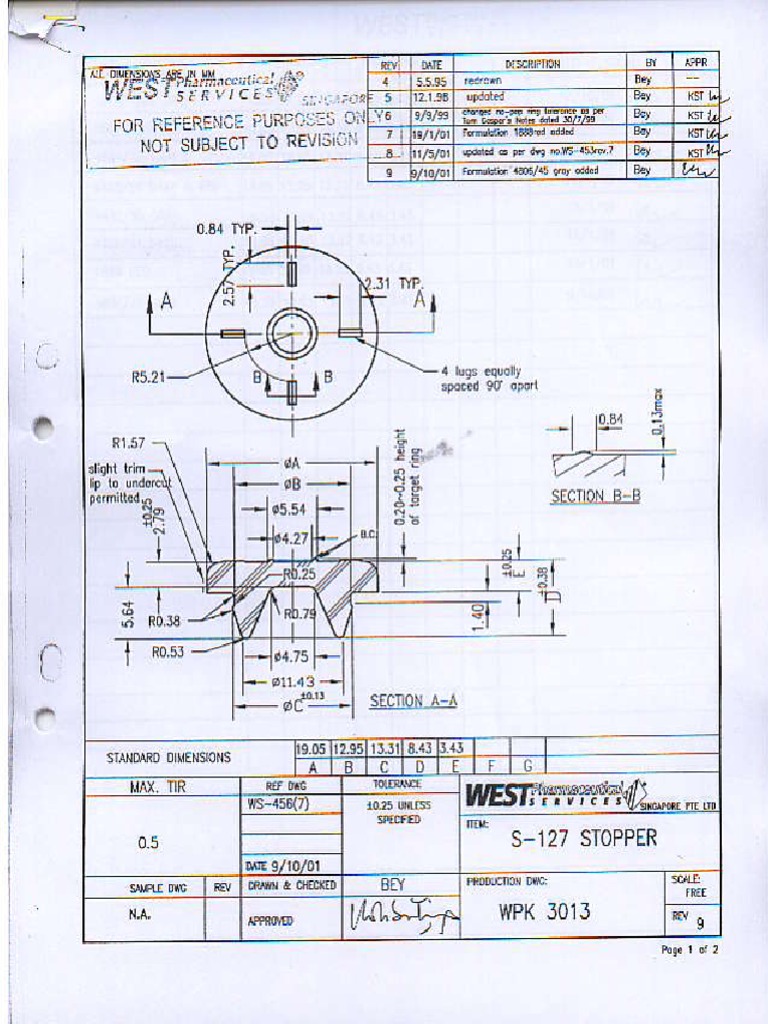 ALL DIMENSIONS ARE IN MM
WEST Pharmaceutical
SERVICES SINGAPORE
FOR REFERENCE PURPOSES ONLY
NOT SUBJECT TO REVISION
REV DATE DESCRIPTION BY APPR
4 5.5.95 redrawn Bey —
5 12.1.98 updated Bey KST
6 9/9/99 changed no-pen ring tolerance as per Bey KST
Tom Gaspar's Notes dated 30/7/99
7 19/1/01 Formulation 1888red added Bey KST
8 11/5/01 updated as per dwg no.WS-453rev.7 Bey KST
9 9/10/01 Formulation 4806/45 gray added Bey
0.84 TYP.
2.57 TYP.
2.31 TYP.
A A
R5.21
B B
4 lugs equally
spaced 90° apart
0.84
0.13max
SECTION B-B
R1.57
slight trim
lip to undercut
permitted
±0.25
2.79
ØA
ØB
Ø5.54
Ø4.27
B.C.
0.20~0.25 height
of target ring
R0.25
±0.25
E
±0.38
D
5.64
R0.38
R0.79
1.40
R0.53
Ø4.75
Ø11.43
±0.13
ØC
SECTION A-A
STANDARD DIMENSIONS
19.05 12.95 13.31 8.43 3.43
A B C D E F G
MAX. TIR
0.5
REF DWG
WS-456(7)
DATE 9/10/01
TOLERANCE
±0.25 UNLESS
SPECIFIED
WEST Pharmaceutical
SERVICES SINGAPORE PTE LTD
ITEM:
S-127 STOPPER
SAMPLE DWG REV
N.A.
DRAWN & CHECKED BEY
APPROVED
PRODUCTION DWG:
WPK 3013
SCALE:
FREE
REV 9
Page 1 of 2